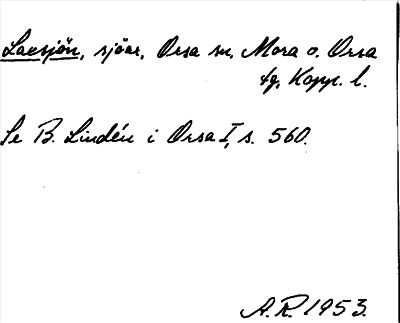 Laesjön, sjöar, Orsa sn, Mora o. Orsa
tg, Kopp. l.
Se B. Lindén i Orsa I, s. 560.
A.R. 1953.